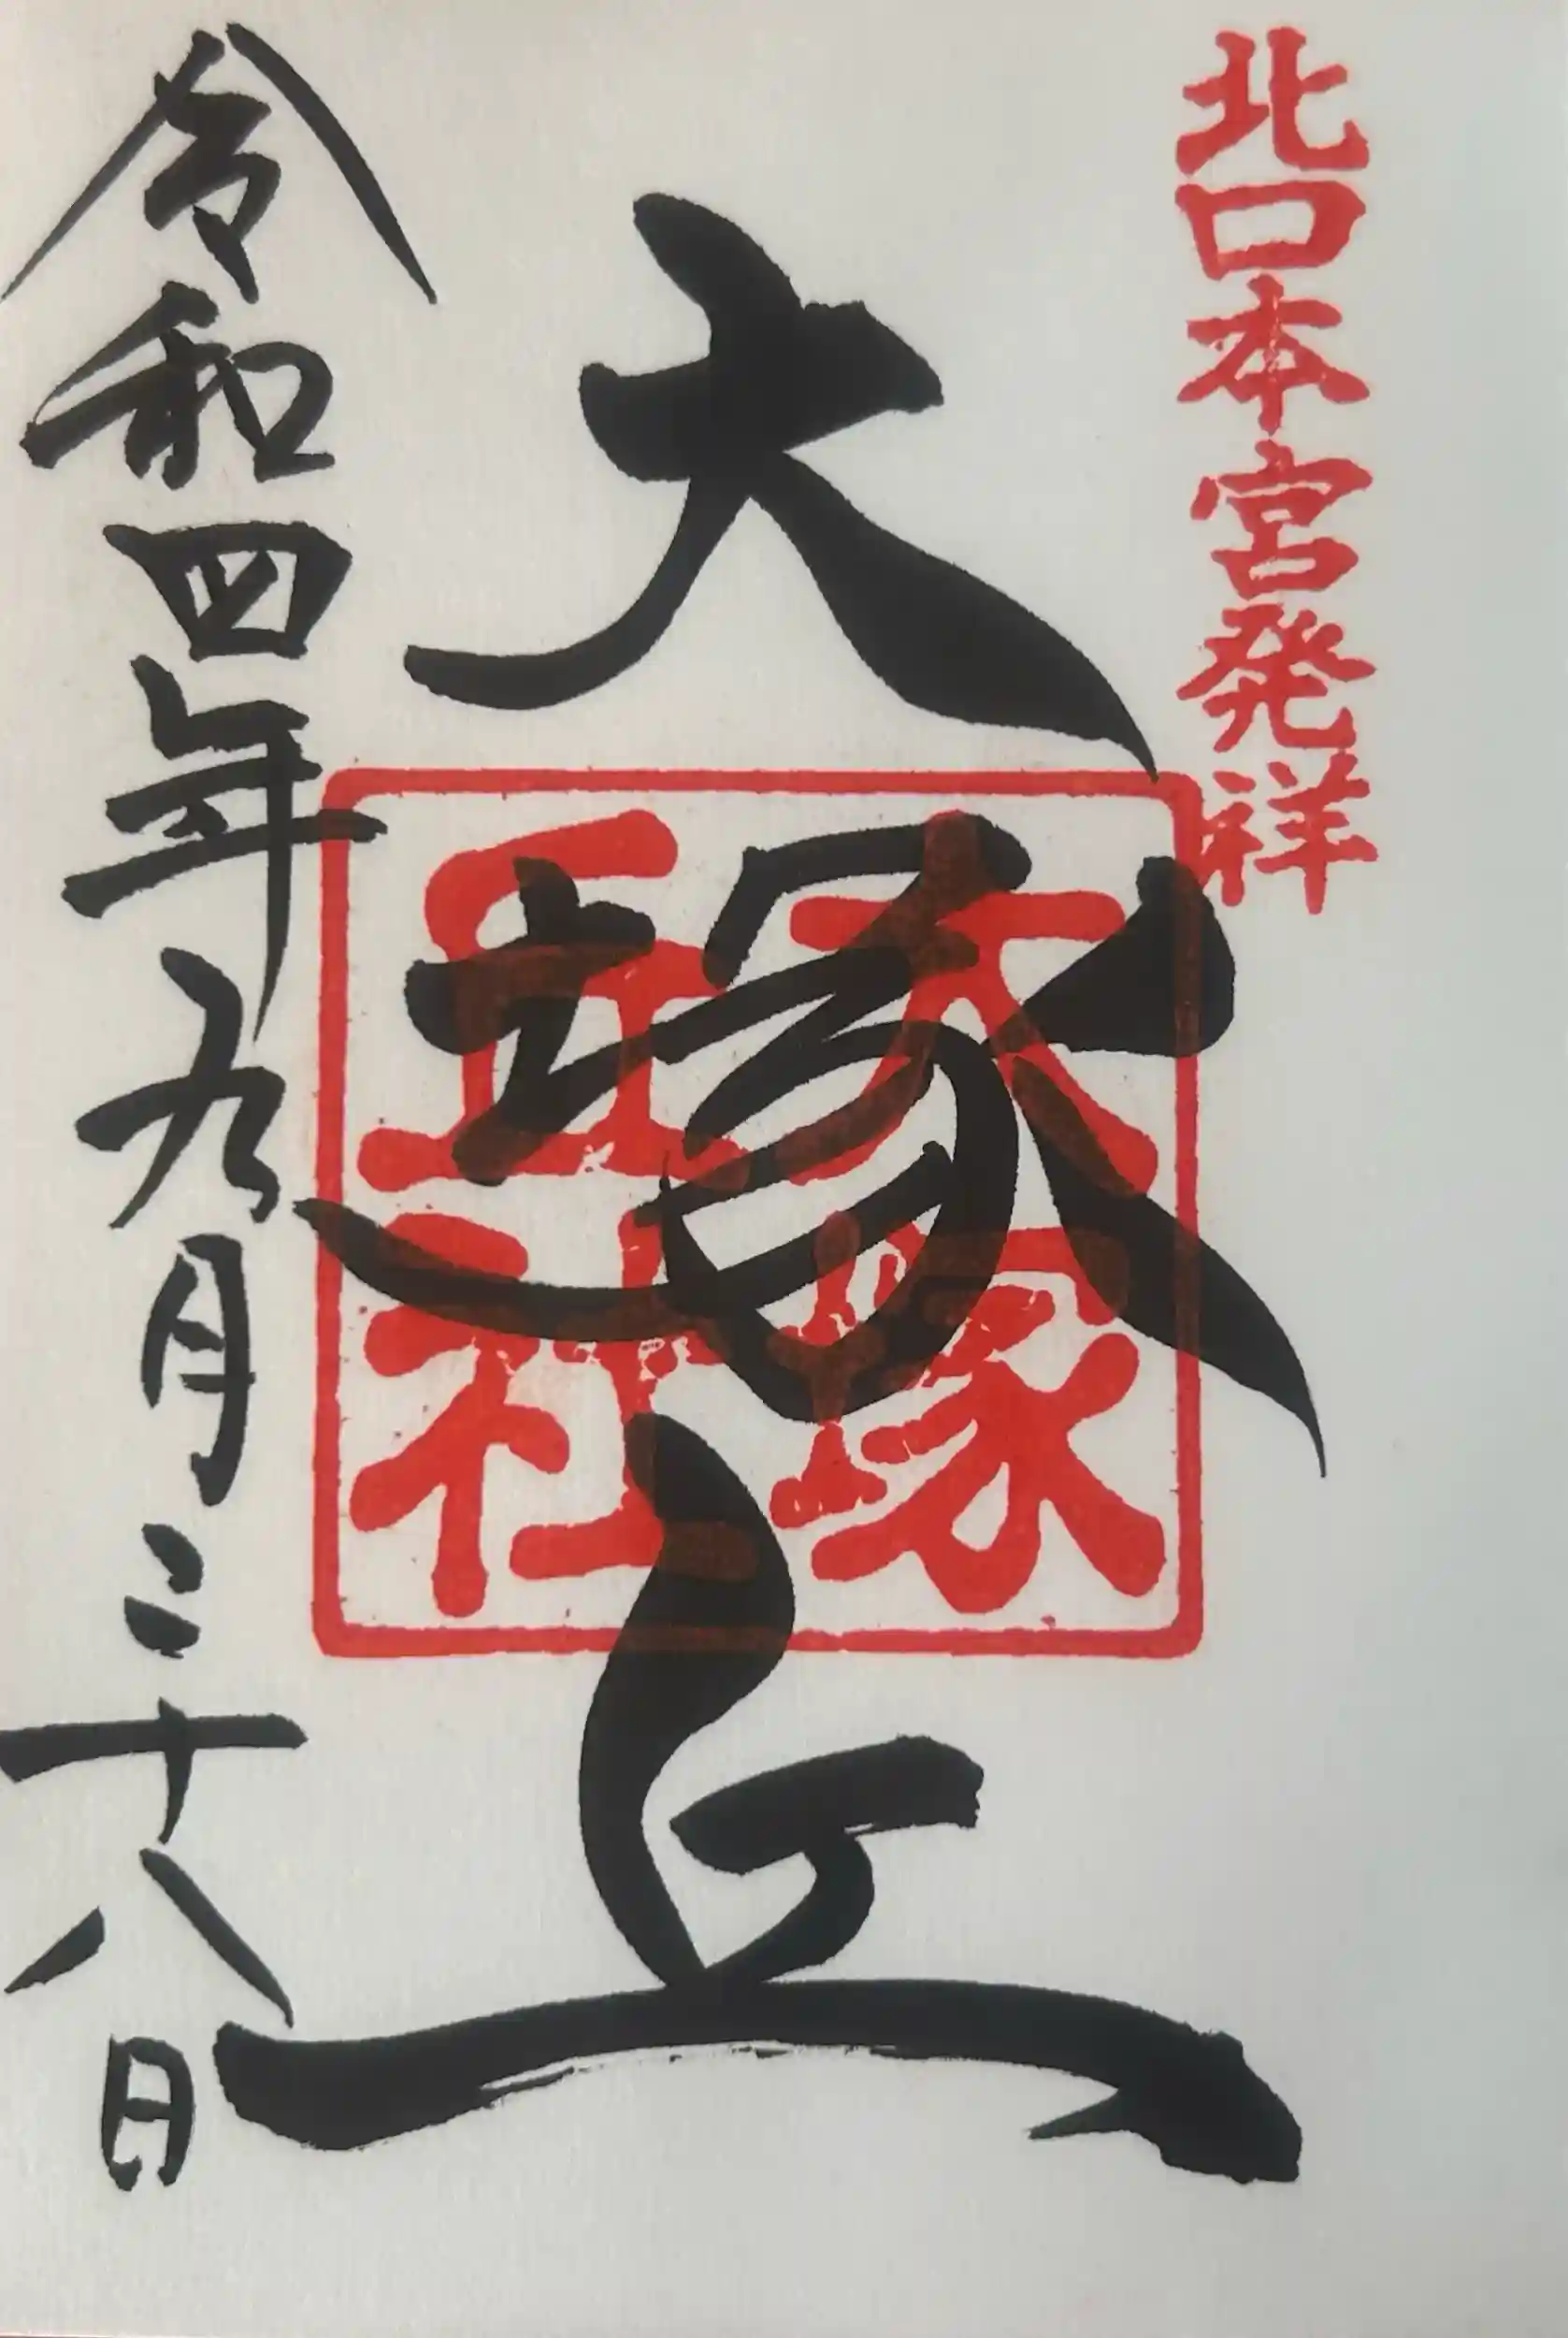 北口本宮発祥
大塚丘
大塚丘社
令和四年九月二十八日